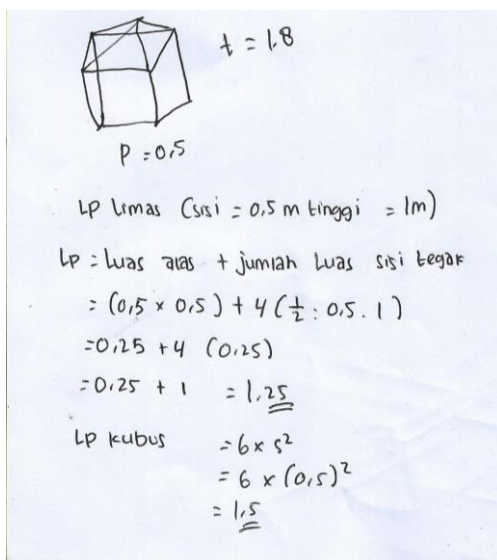 t = 1.8
P = 0,5
LP Limas (sisi = 0,5 m tinggi = 1m)
LP = Luas alas + jumlah luas sisi tegak
= (0,5 × 0,5) + 4 (1/2 : 0,5 . 1)
= 0,25 + 4 (0,25)
= 0,25 + 1 = 1,25
LP kubus = 6 × s²
= 6 × (0,5)²
= 1,5